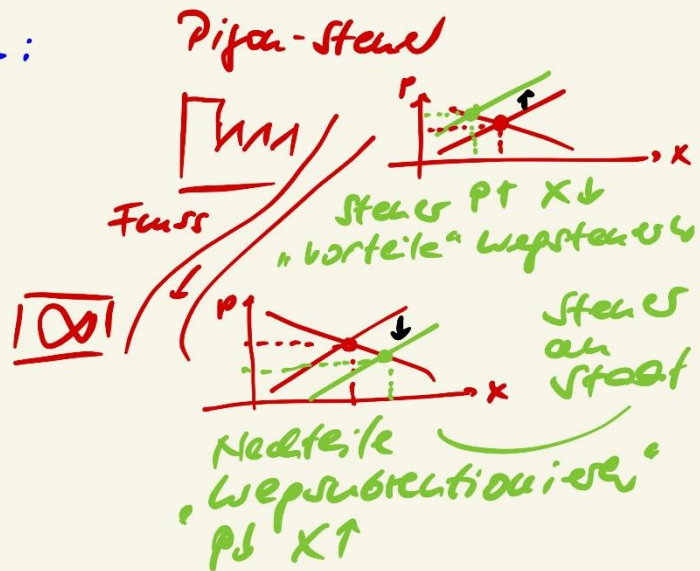 :
Pigou-Steuer
P
x
Fluss
Steuer P↑ X↓
"Vorteile" wegsteuern
P
x
Steuer
an
Staat
Nachteile
"wegsubventionieren"
P↓ X↑